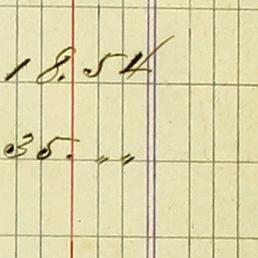 18.54
35. „ „